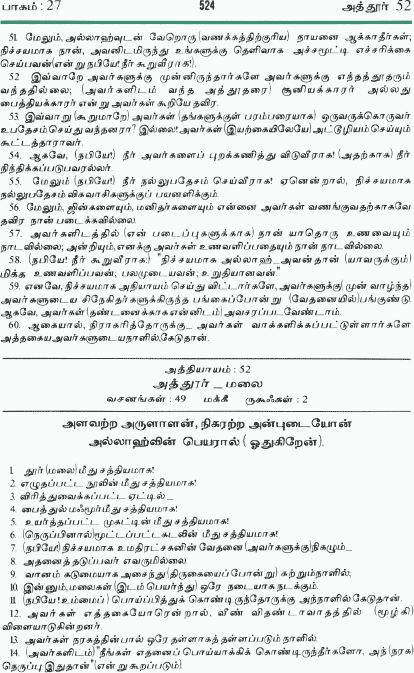 பாகம் : 27 524 அத்தூர் 52
51. மேலும், அல்லாஹ்வுடன் வேறொரு (வணக்கத்திற்குரிய) நாயனை ஆக்காதீர்கள்;
நிச்சயமாக நான், அவனிடமிருந்து உங்களுக்கு தெளிவாக அச்சமூட்டி எச்சரிக்கை
செய்பவன் (என்று நபியே! நீர் கூறுவீராக!).
52. இவ்வாறே அவர்களுக்கு முன்னிருந்தார்களே அவர்களுக்கு எந்தத்தூதரும்
வந்ததில்லை; (அவர்களிடம் வந்த அத்தூதரை) சூனியக்காரர் அல்லது
பைத்தியக்காரர் என்று அவர்கள் கூறியே தவிர.
53. இவ்வாறு (கூறுமாறே) அவர்கள் (தங்களுக்குள் பரம்பரையாக) ஒருவருக்கொருவர்
உபதேசம் செய்து வந்தனரா? இல்லை! அவர்கள் (இயற்கையிலேயே) அட்டூழியம் செய்யும்
கூட்டத்தாராவர்.
54. ஆகவே, (நபியே!) நீர் அவர்களைப் புறக்கணித்து விடுவீராக! (அதற்காக) நீர்
நிந்திக்கப்படுபவரல்லர்.
55. மேலும் (நபியே!) நீர் நல்லுபதேசம் செய்வீராக! ஏனென்றால், நிச்சயமாக
நல்லுபதேசம் விசுவாசிகளுக்குப் பயனளிக்கும்.
56. மேலும், ஜின்களையும், மனிதர்களையும் என்னை அவர்கள் வணங்குவதற்காகவே
தவிர நான் படைக்கவில்லை.
57. அவர்களிடத்தில் (என் படைப்புகளுக்காக) நான் யாதொரு உணவையும்
நாடவில்லை; அன்றியும், எனக்கு அவர்கள் உணவளிப்பதையும் நான் நாடவில்லை.
58. (நபியே! நீர் கூறுவீராக:) "நிச்சயமாக அல்லாஹ் _ அவன்தான் (யாவருக்கும்)
மிக்க உணவளிப்பவன்; பலமுடையவன்; உறுதியானவன்."
59. எனவே, நிச்சயமாக அநியாயம் செய்து விட்டார்களே, அவர்களுக்கு(முன் வாழ்ந்த)
அவர்களுடைய சிநேகிதர்களுக்கிருந்த பங்கைப்போன்று (வேதனையில்) பங்குண்டு
ஆகவே, அவர்கள் (தண்டனைக்காக என்னிடம்) அவசரப்படவேண்டாம்.
60. ஆகையால், நிராகரித்தோருக்கு _ அவர்கள் வாக்களிக்கப்பட்டுள்ளார்களே
அத்தகைய அவர்களுடைய நாளில், கேடுதான்.
அத்தியாயம் : 52
அத்தூர் _ மலை
வசனங்கள் : 49 மக்கீ ருகூஃகள் : 2
அளவற்ற அருளாளன், நிகரற்ற அன்புடையோன்
அல்லாஹ்வின் பெயரால் (ஓதுகிறேன்).
1. தூர் (மலை) மீது சத்தியமாக!
2. எழுதப்பட்ட நூலின் மீது சத்தியமாக!
3. விரித்துவைக்கப்பட்ட ஏட்டில் _
4. பைத்துல் மஃமூர் மீது சத்தியமாக!
5. உயர்த்தப்பட்ட முகட்டின் மீது சத்தியமாக!
6. (நெருப்பினால்) மூட்டப்பட்ட கடலின் மீது சத்தியமாக!
7. (நபியே!) நிச்சயமாக உமதிரட்சகனின் வேதனை (அவர்களுக்கு)நிகழும் _
8. அதனைத் தடுப்பவர் எவருமில்லை.
9. வானம் கடுமையாக அசைந்து (திருகையைப் போன்று) சுற்றும் நாளில்;
10. இன்னும், மலைகள் (இடம் பெயர்ந்து) ஒரே நடையாக நடக்கும்.
11. (நபியே! உம்மைப்) பொய்ப்பித்துக் கொண்டிருந்தோருக்கு அந்நாளில் கேடுதான்.
12. அவர்கள் எத்தகையோரென்றால், வீண் விதண்டாவாதத்தில் (மூழ்கி)
விளையாடுகின்றனர்.
13. அவர்கள் நரகத்தின்பால் ஒரே தள்ளாகத் தள்ளப்படும் நாளில்.
14. (அவர்களிடம்) "நீங்கள் எதனைப் பொய்யாக்கிக் கொண்டிருந்தீர்களோ, அந் (நரக)
நெருப்பு இதுதான்" (என்று கூறப்படும்).